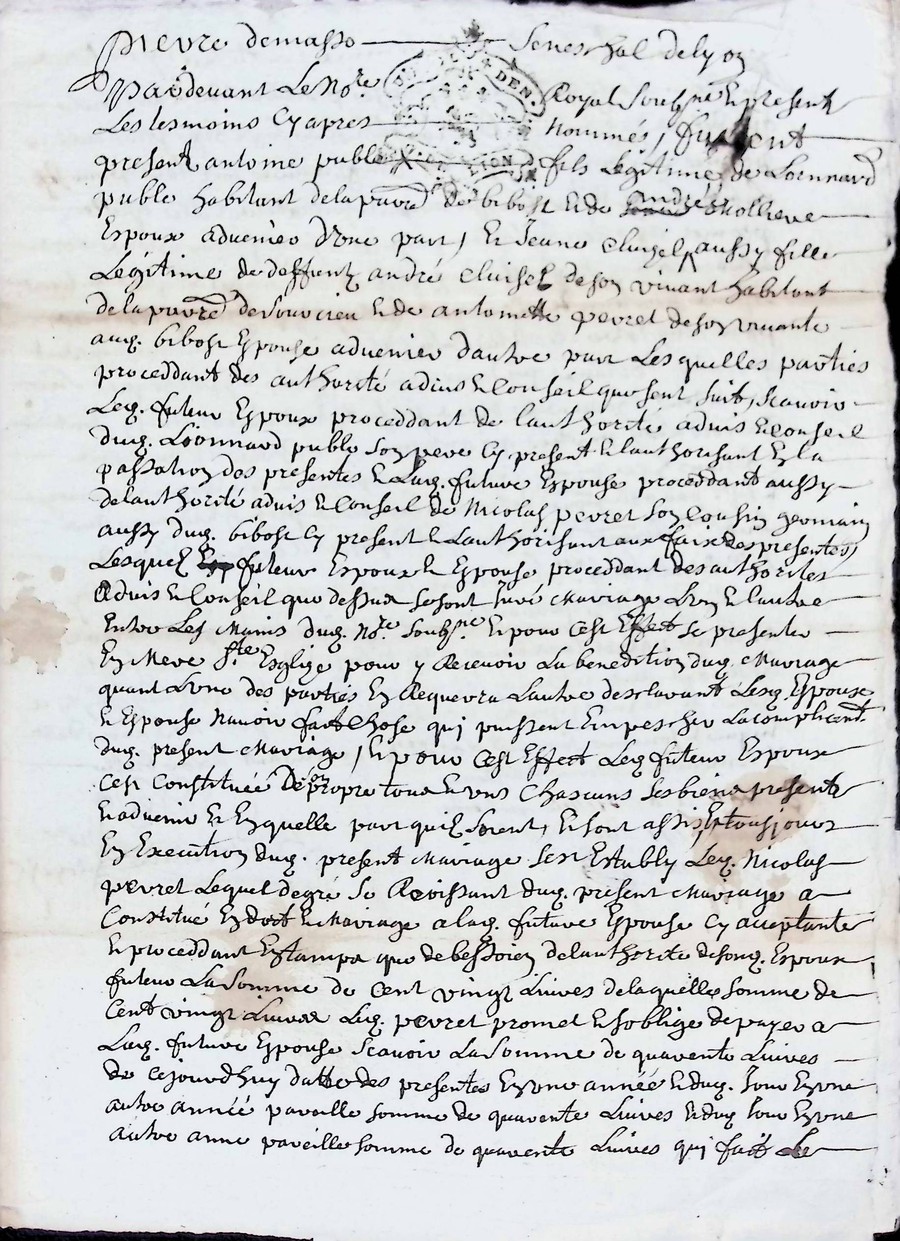 pierre demasso seneschal delyon
Pardevant Le No.re Royal soubg.ne En presentz
Les tesmoins Cy apres nommés, furent
present antoine puble fils Legitime de Léonnard
puble habitant dela parre de bibost Et de andrée Mollieve
Espoux advenier d'une part, Et Jeane Cluzel aussy fille
Legitime de deffient andré Cluisel de son vivant habitant
dela parre de souvcieu Et de antoinette peyret de son vivante
aud. bibost Espouse advenier dautre part Lesquelles parties
proceddant des authorité advis Et Conseil que sent suit, scavoir
Led. futeur Espoux proceddant de l'authorité advis Et Conseil
dud. Léonnard puble son pere Cy present Et l'authorisant En la
passation des presentes Et Lad. future Espouse proceddant aussy
de lauthorité advis Et Conseil de Nicolas peyret son Cousin germain
aussy dud. bibost Cy present Et Lauthorisant aux faix des presentes,
Lesquel futeur Espoux Et Espouse proceddant des authorites
Advis Et Conseil que dessus se sont Juré Mariage L'un Et lautre
Entre Les Mains dud. No.re soubg.ne Et pour Cest Effect se presenter
En Mere S.te Esglize pour y Recevoir La benedition dud. Mariage
quant L'une des parties En Requerra Lautre desclarant Lesd. Espoux
Et Espouse Navoir fait Chose qui puissent Empescher Lacomplicent
dud. present Mariage, Et pour Cest Effect Led. futeur Espoux
Cest Constituée De propre tous Et uns Chascuns ses biens presents
Et advenir Et En quelle part quil soient, Et sont assis, Et tousjours
En Execution dud. present Mariage sest Estably Led. Nicolas
peyret Lequel de gré se Reissant dud. present Mariage a
Constitué En dost Et Mariage a lad. future Espouse Cy acceptante
Et proceddant Entampe que de bessoien de lauthorité de sond. Espoux
futeur La somme de Cent vingt Livres de laquelle somme de
Cent vingt Livres Led. peyret promet Et soblige de payer a
Lad. future Espouse scavoir La somme de quarente Livres
de cejourdhuy datte des presentes En une année Et dud. Jour En une
autre année pareille somme de quarente Livres Et dud. Jour En une
autre anne pareille somme de quarente Livres qui fait Le